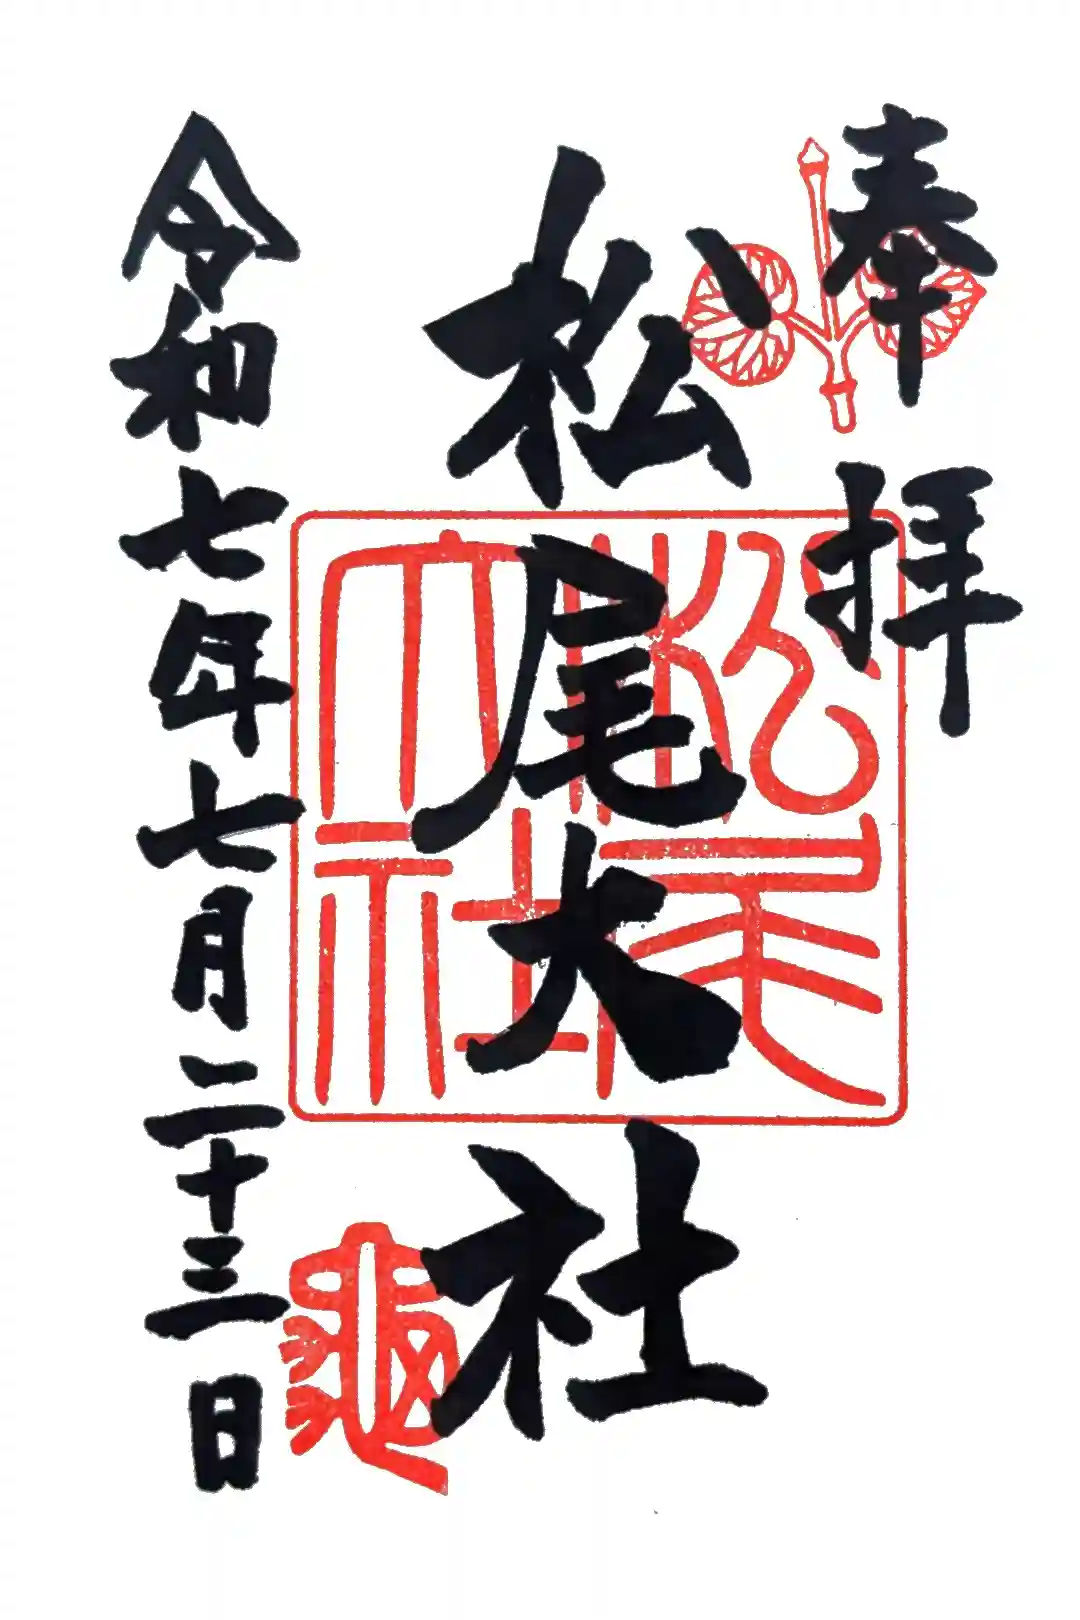 奉拝
松尾大社
松尾大社
龜
令和七年七月二十三日